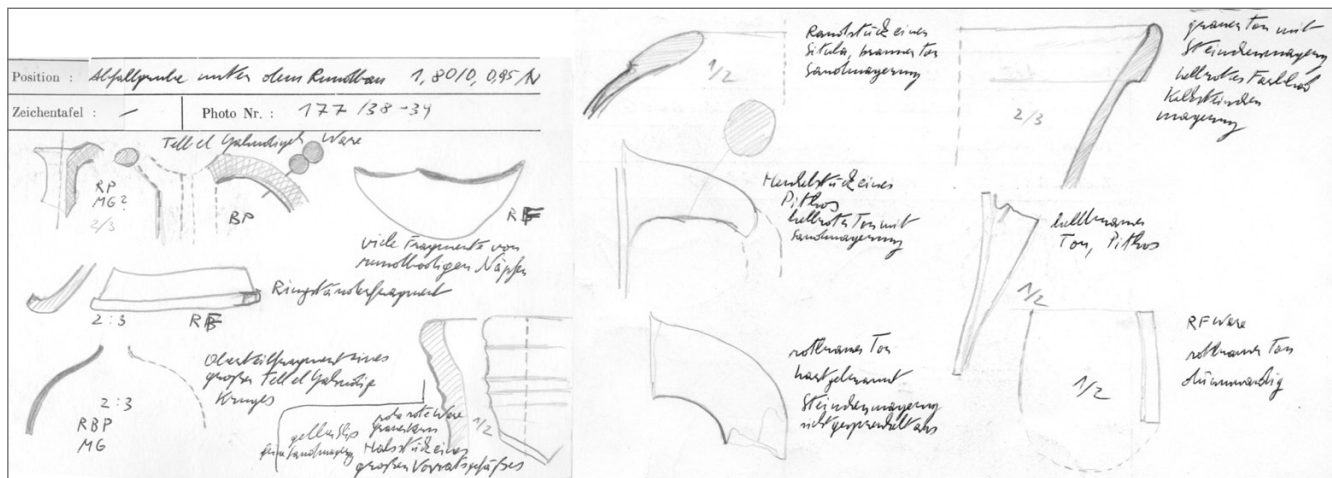 Position : Abfallgrube unter dem Rundbau 1,80/0, 0,95/N
Zeichentafel : — Photo Nr. : 177 /38-34
Tell el Yahudiyeh Ware
RP
MG?
2/3
BP
RBF
viele Fragmente von
rundbodigen Näpfen
Ringständerfragment
2:3 RBF
Oberteilfragment eines
großen Tell el Yahudiya
Kruges
2:3
RBP
MG
gelber Slip
feine Sandmagerg
rosarote Ware
grauer Kern
Halsstück eines
großen Vorratsgefäßes
1/2
Randstück eines
Situla, brauner Ton
Sandmagerung
1/2
Henkelstück eines
Pithos
hellroter Ton mit
Sandmagerung
rotbrauner Ton
hartgebrannt
Steinchenmagerung
nicht
grauer Ton mit
Steinchenmagerg
hellrotes
Kalksteinchen
magerung
2/3
hellbrauner
Ton, Pithos
1/2
RF Ware
rotbrauner Ton
dünnwandig
1/2